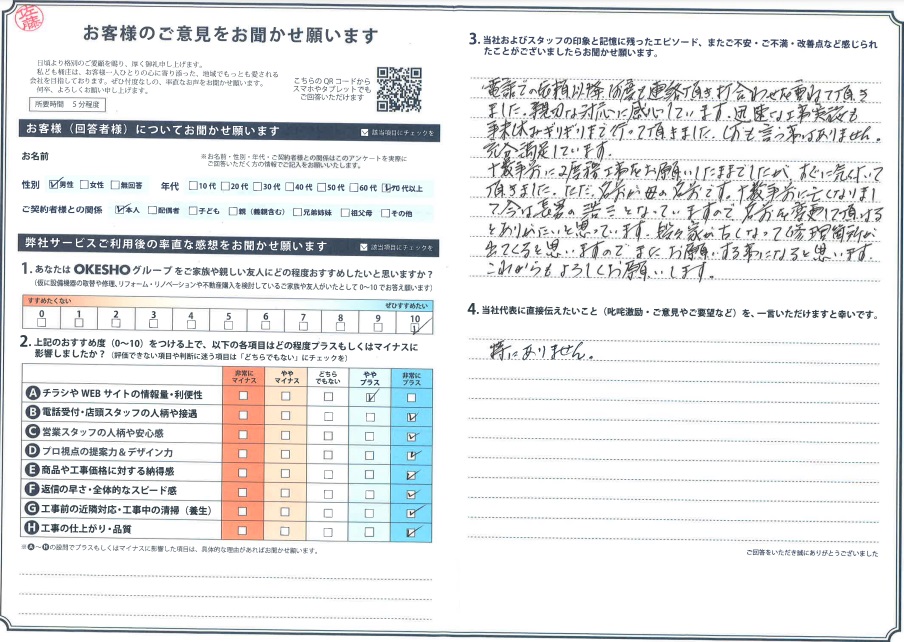 佐藤
お客様のご意見をお聞かせ願います
日頃より格別のご愛顧を賜り、厚く御礼申し上げます。
私ども桶庄は、お客様一人ひとりの心に寄り添った、地域でもっとも愛される
会社を目指しております。ぜひ忖度なしの、率直なお声をお聞かせ願います。
何卒、よろしくお願い申し上げます。
所要時間 5分程度
こちらのQRコードから
スマホやタブレットでも
ご回答いただけます
お客様（回答者様）についてお聞かせ願います
該当項目にチェックを
お名前
※お名前・性別・年代・ご契約者様との関係はこのアンケートを実際に
ご回答いただく方の情報でご記入をお願いいたします。
性別 男性 女性 無回答 年代 10代 20代 30代 40代 50代 60代 70代以上
ご契約者様との関係 本人 配偶者 子ども 親（義親含む） 兄弟姉妹 祖父母 その他
弊社サービスご利用後の率直な感想をお聞かせ願います
該当項目にチェックを
1. あなたは OKESHO グループをご家族や親しい友人にどの程度おすすめしたいと思いますか？
（仮に設備機器の取替や修理、リフォーム・リノベーションや不動産購入を検討しているご家族や友人がいたとして 0～10 でお答え願います）
すすめたくない ぜひすすめたい
0 1 2 3 4 5 6 7 8 9 10
2. 上記のおすすめ度（0～10）をつける上で、以下の各項目はどの程度プラスもしくはマイナスに
影響しましたか？（評価できない項目や判断に迷う項目は「どちらでもない」にチェックを）
非常にマイナス ややマイナス どちらでもない ややプラス 非常にプラス
A チラシやWEBサイトの情報量・利便性
B 電話受付・店頭スタッフの人柄や接遇
C 営業スタッフの人柄や安心感
D プロ視点の提案力＆デザイン力
E 商品や工事価格に対する納得感
F 返信の早さ・全体的なスピード感
G 工事前の近隣対応・工事中の清掃（養生）
H 工事の仕上がり・品質
※A～Hの設問でプラスもしくはマイナスに影響した項目は、具体的な理由があればお聞かせ願います。
3. 当社およびスタッフの印象と記憶に残ったエピソード、またご不安・ご不満・改善点など感じられ
たことがございましたらお聞かせ願います。
電話での依頼以降 何度も連絡頂き打合わせを重ねて頂き
ました。親切な対応に感心しています。迅速な工事実施も
年末休みギリギリまで行って頂きました。何も言う事はありません。
充分満足しています。
十数年前に2度程工事をお願いしたままでしたが、すぐに気付いて
頂きました。ただ、名前が母の名前です。十数年前に亡くなりまし
て今は長男の となっていますので 名前を変更して頂ける
とありがたいと思っています。 家が古くなって修理箇所が
出てくると思いますので またお願いする事になると思います。
これからもよろしくお願いします。
4. 当社代表に直接伝えたいこと（叱咤激励・ご意見やご要望など）を、一言いただけますと幸いです。
特にありません。
ご回答をいただき誠にありがとうございました